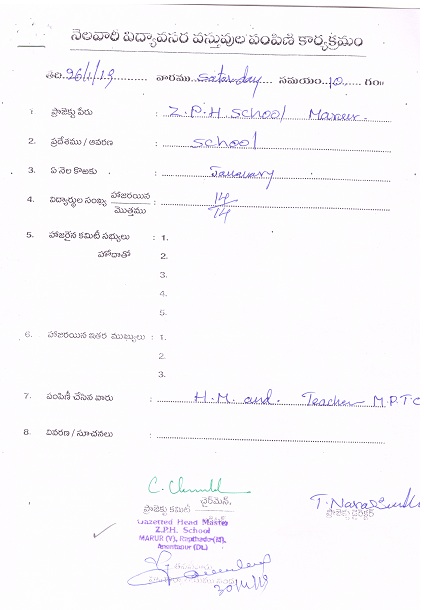 నెలవారి విద్యావసర వస్తువుల పంపిణి కార్యక్రమం
తేది. 26/1/19 వారము saturday సమయం. 10 గం॥
1. ప్రాజెక్టు పేరు : Z.P.H School Maneer.
2. ప్రదేశము / ఆవరణ : School
3. ఏ నెల కొఱకు : January
4. విద్యార్థుల సంఖ్య హాజరయిన : 14
మొత్తము 14
5. హాజరైన కమిటీ సభ్యులు : 1.
హోదాతో 2.
3.
4.
5.
6. హాజరయిన ఇతర ముఖ్యులు : 1.
2.
3.
7. పంపిణీ చేసిన వారు : H.M. and. Teacher M.P.T.C
8. వివరణ / సూచనలు :
ఛైర్‌మెన్,
ప్రాజెక్టు కమిటి
ప్రాజెక్టు డైరెక్టర్
Gazetted Head Master
Z.P.H. School
MARUR (V), Rapthadu(M),
Anantapur (Dt.)